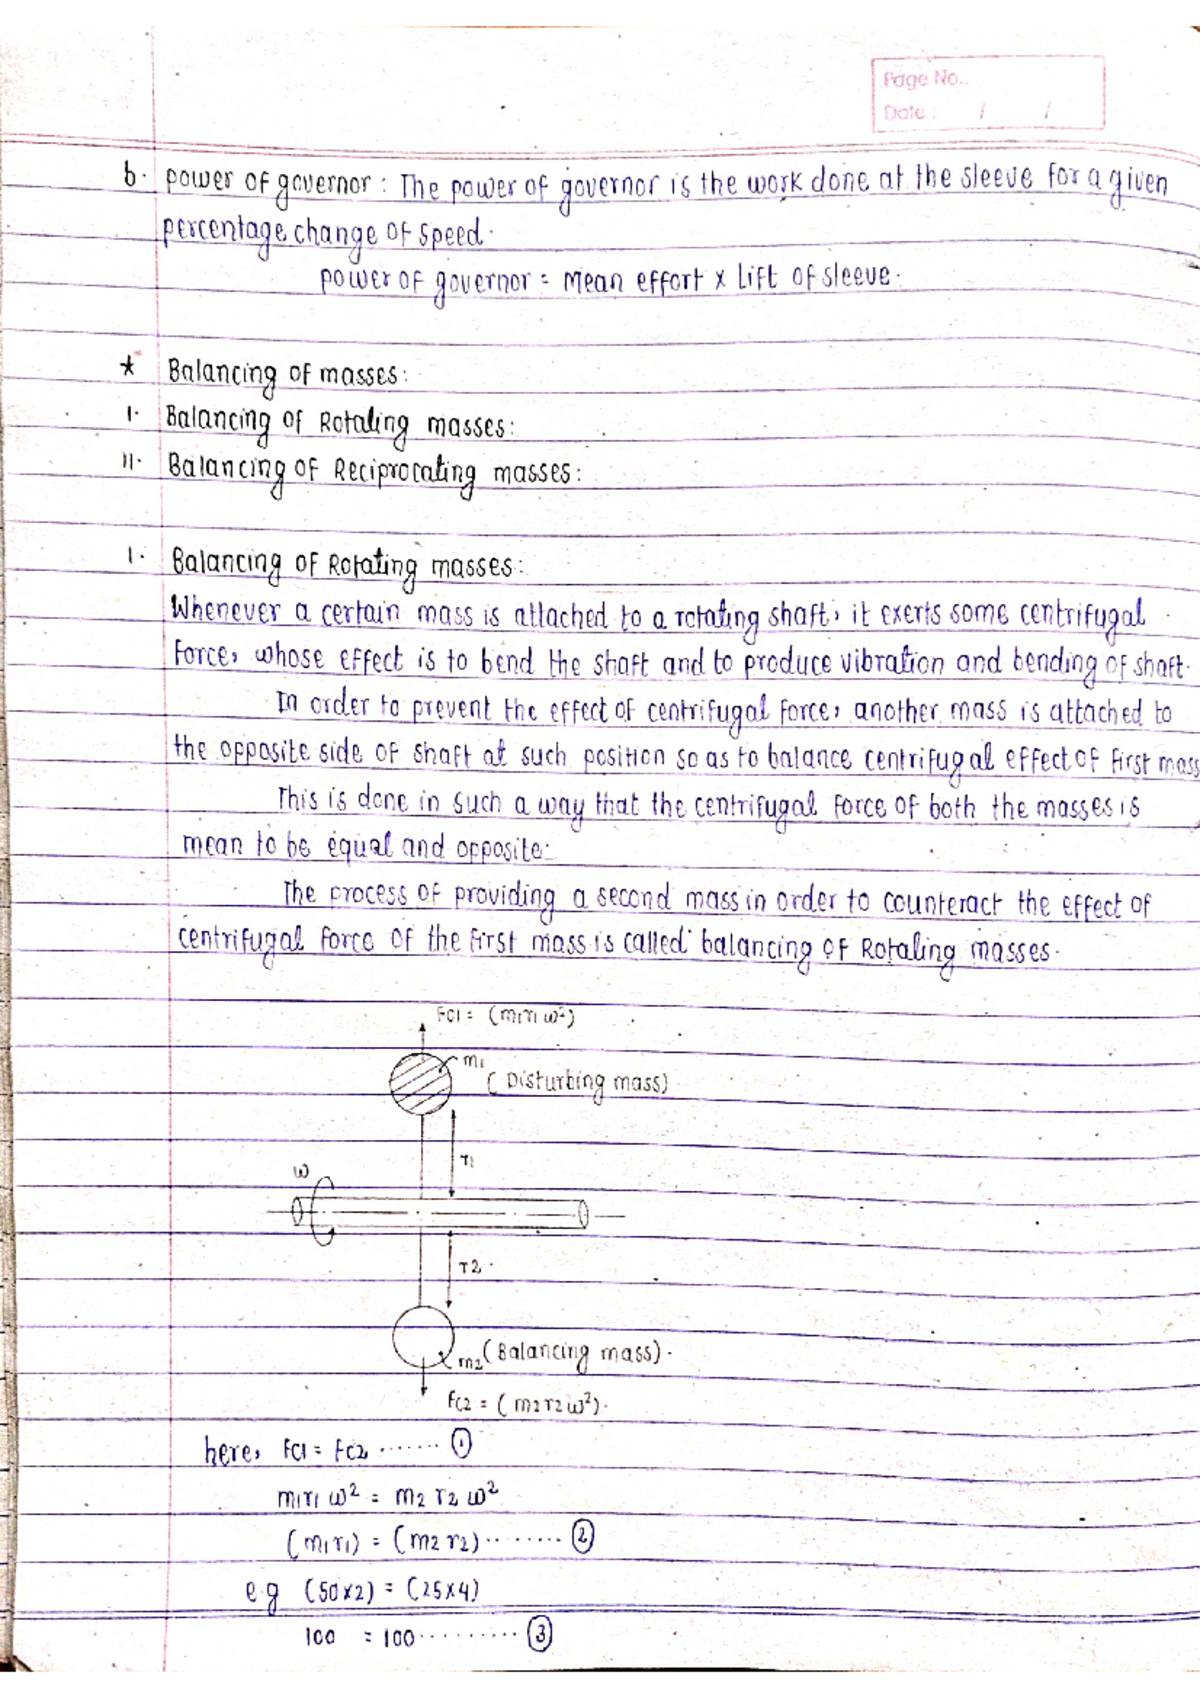 Page No.:
Date : / /
b. power of governor : The power of governor is the work done at the sleeve for a given
percentage change of speed.
power of governor = Mean effort x Lift of sleeve.
* Balancing of masses:
I. Balancing of Rotating masses:
II. Balancing of Reciprocating masses:
I. Balancing of Rotating masses:
Whenever a certain mass is attached to a rotating shaft, it exerts some centrifugal
force, whose effect is to bend the shaft and to produce vibration and bending of shaft.
In order to prevent the effect of centrifugal force, another mass is attached to
the opposite side of shaft at such position so as to balance centrifugal effect of first mass
This is done in such a way that the centrifugal force of both the masses is
mean to be equal and opposite.
The process of providing a second mass in order to counteract the effect of
centrifugal force of the first mass is called balancing of Rotating masses.
Fc1 = (m1r1 ω²)
m1
(Disturbing mass)
r1
ω
r2.
m2 (Balancing mass).
Fc2 = (m2r2ω²).
here, Fc1 = Fc2 ....... ①
m1r1 ω² = m2 r2 ω²
(m1r1) = (m2 r2) ........ ②
e.g (50x2) = (25x4)
100 = 100 ......... ③